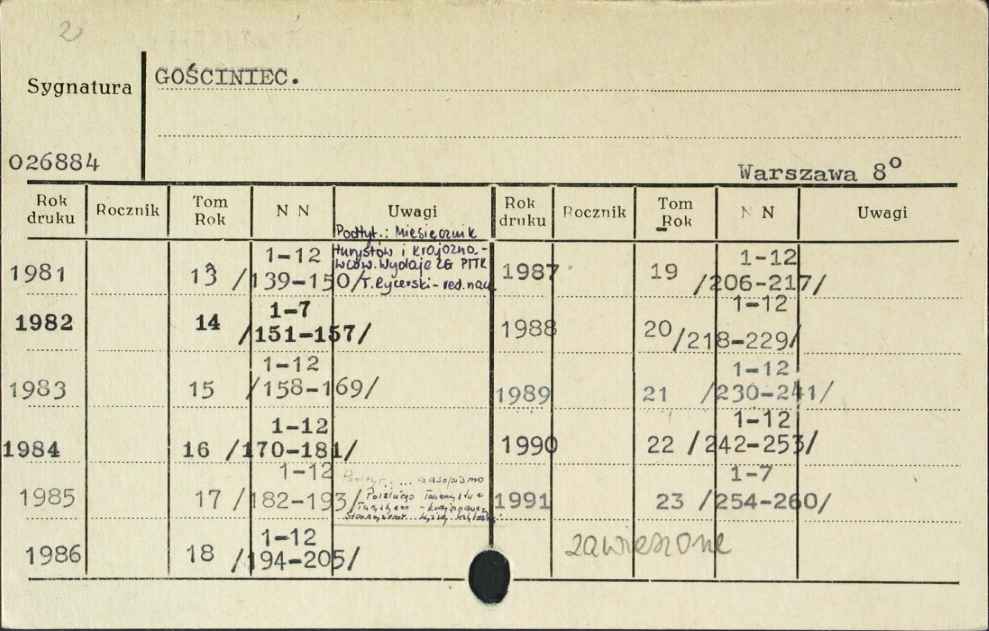 2
GOŚCINIEC.
Sygnatura
026884
Warszawa 8°
Rok druku Rocznik Tom Rok N N Uwagi Rok druku Rocznik Tom Rok N N Uwagi
Podtyt.: Miesięcznik
turystów i krajozna-
wców. Wydaje ZG PTTK
T. Rycerski - red. nacz
1981 13 1-12 /139-150/
1982 14 1-7 /151-157/
1983 15 1-12 /158-169/
1984 16 1-12 /170-181/
1985 17 1-12 /182-193/
Podtyt.: ... czasopismo
Polskiego Towarzystwa
1986 18 1-12 /194-205/
1987 19 1-12 /206-217/
1988 20 1-12 /218-229/
1989 21 1-12 /230-241/
1990 22 1-12 /242-253/
1991 23 1-7 /254-260/
zawieszone